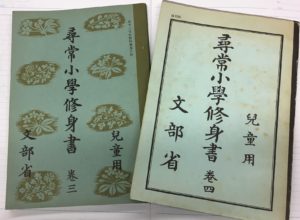 尋常小學修身書 卷三
兒童用
文部省
兒童用
尋常小學修身書 卷四
文部省